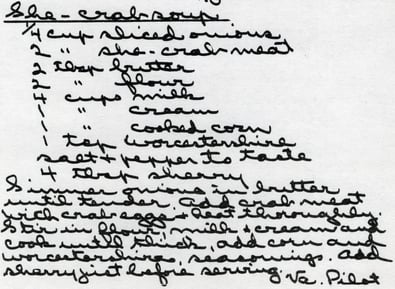 She-crab soup
1/4 cup sliced onions
2 " she-crab meat
2 tbsp butter
2 " flour
4 cups milk
1 " cream
1 " cooked corn
1 tsp worcestershire
salt + pepper to taste
4 tbsp sherry
Simmer onions in butter
until tender. Add crab meat
with crab eggs + heat thoroughly.
Stir in flour, milk + cream and
cook until thick, add corn and
worcestershire, seasonings. Add
sherry just before serving. Va. Pilot